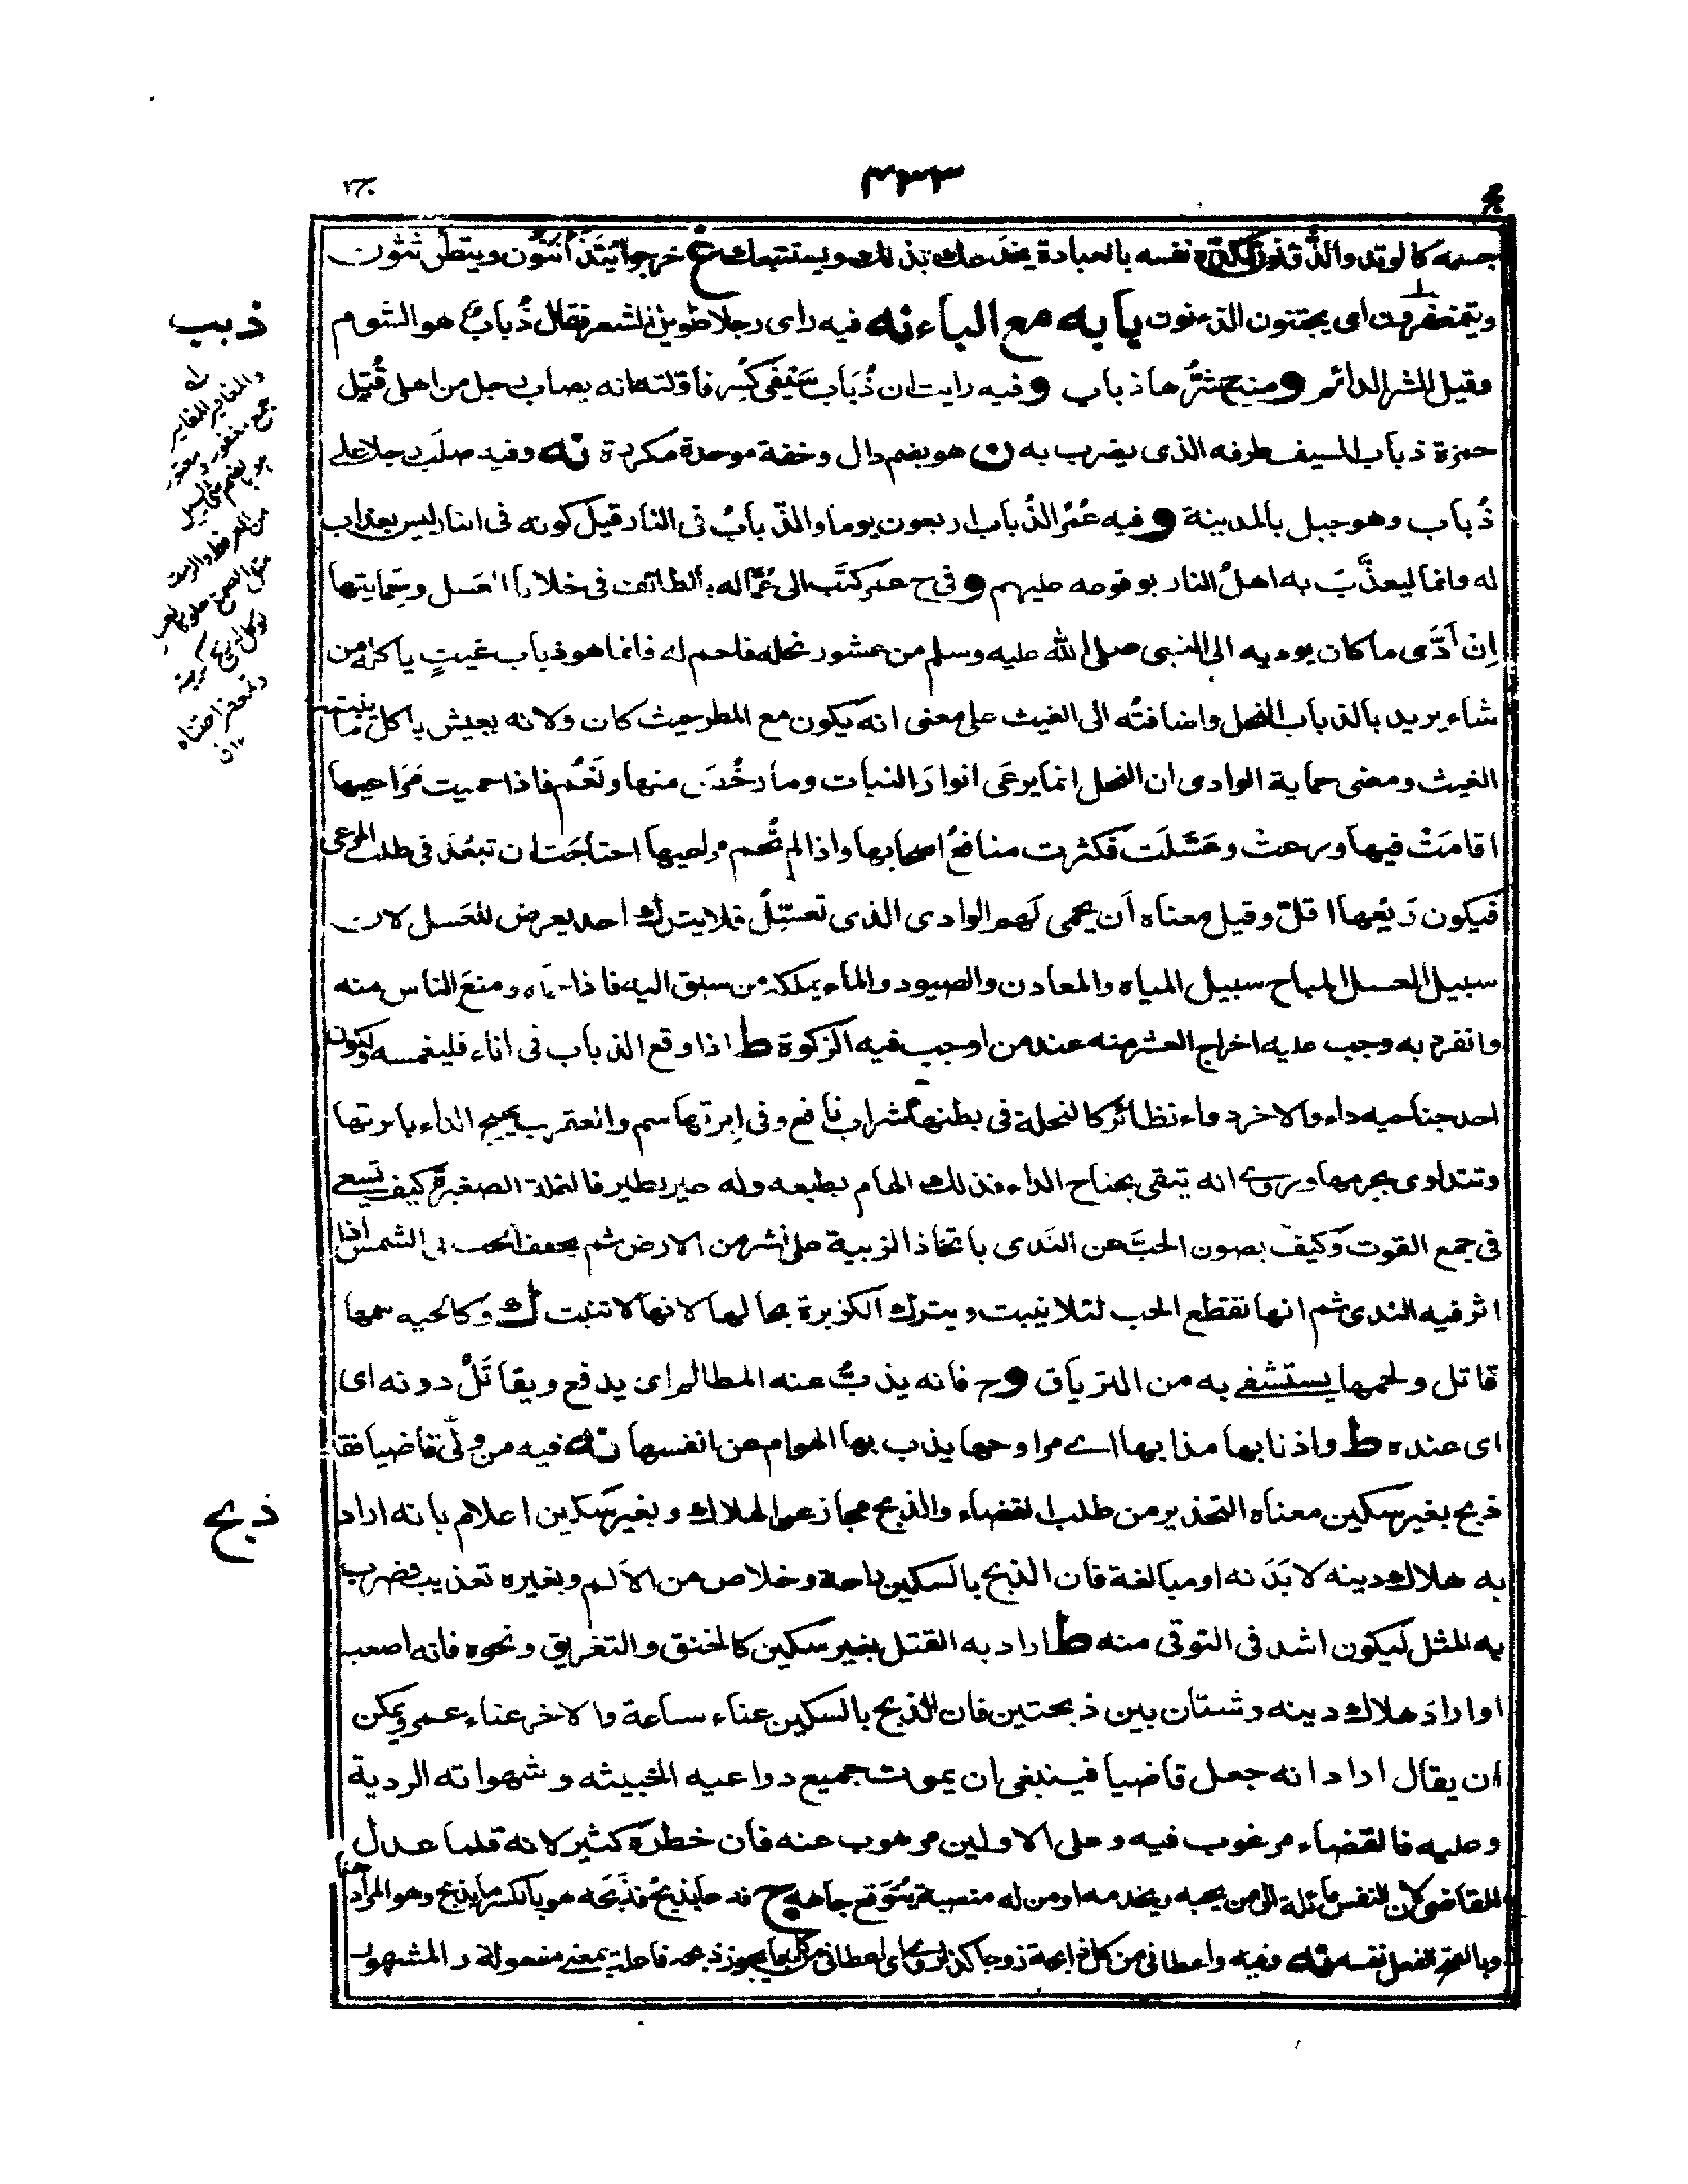 ٤٣٣
ج١
جسمه كالوتد والذ نفسه بالعبادة يخدعك بذلك ويستتبعك غ خرجوا يتذأنثون ويتطرثثون
ويتمغفرون اى يجتنون الذءنون بابه مع الباء نه فيه راى رجلا طويل الشعر فقال ذُباب هو الشوم
وقيل الشر الدائم و منه ح شرها ذباب و فيه رايت ان ذُبَاب سَيْفى كُسِر فاوّلته انه يصاب رجل من اهلى فقُتِل
حمزة ذباب السيف طرفه الذى يضرب به ن هو بضم دال وخفة موحدة مكررة نه وفيه صلَب رجلا على
ذُباب وهو جبل بالمدينة و فيه عُمْر الذُباب اربعون يوما والذّبابُ فى النار قيل كونه فى النار ليس بعذاب
له وانما ليعذَّبَ به اهلُ النار بوقوعه عليهم و فى ح عمر كتَب الى عُمّاله بالطائف فى خلايا العَسل وحِمايتها
اِنْ اَدَّى ما كان يوديه الى النبى صلى الله عليه وسلم من عشور نحله فاحم له فانما هو ذباب غيثٍ ياكله من
شاء يريد بالذباب النحل واضافتُه الى الغيث على معنى انه يكون مع المطر حيث كان ولانه يعيش باكل ما ينبته
الغيث ومعنى حماية الوادى ان النحل انما يرعَى انوارَ النبات وما رخُصَ منها ونَعُم فاذا حميت مَرَاعيها
اقامَتْ فيها ورعتْ وعَسَّلَت فكثرت منافعُ اصحابها واذا لم تُحم مراعيها احتاجَت ان تبعُدَ فى طلب المرعى
فيكون رَيْعها اقلّ وقيل معناه اَن يحمى لَهم الوادى الذى تعسّلُ فلا يترك احد يعرض للعَسل لان
سبيل العسل المباح سبيل المياه والمعادن والصيود والماء يملكه من سبق اليه فاذا حماه ومنعَ الناس منه
وانفرد به وجب عليه اخراج العشر منه عند من اوجب فيه الزكوة ط اذا وقع الذباب فى اناء فليغمسه وكون
احد جناحيه داء والاخر دواء نظائر كالنحلة فى بطنها شراب نافع وفى اِبرتها سم والعقرب يهيج الداء بابرتها
وتتداوى بجرمها وروى انه يتقى بجناح الداء فذلك الهام بطبعه وله غير نظير فالنملة الصغيرة كيف تسعى
فى جمع القوت وكيف يصون الحبَّ عن النَدى باتخاذ الزبية على نشر من الارض ثم يجفف الحب فى الشمس اذا
اثر فيه الندى ثم انها تقطع الحب لئلا ينبت ويترك الكزبرة بحالها لانها لا تنبت ك وكالحيه سمها
قاتل ولحمها يستشفى به من الترياق و ح فانه يذبُّ عنه المظالم اى يدفع ويقاتَلُ دونه اى
اى عنده ط واذنابها مذابها اى مراوحها يذب بها الهوام عن انفسها نه فيه من ولّى قاضيا فقد
ذبح بغير سكين معناه التحذير من طلب القضاء والذبح مجاز عن الهلاك وبغير سكين اعلام بانه اراد
به هلاك دينه لا بَدَنه او مبالغة فان الذبح بالسكين راحة وخلاص من الاَلم وبغيره تعذيب فضرب
به المثل ليكون اشد فى التوقى منه ط اراد به القتل بغير سكين كالخنق والتغريق ونحوه فانه اصعب
او ارادَ هلاك دينه وشتان بين ذبحتين فان الذبح بالسكين عناء ساعة والاخر عناء عمر ويمكن
ان يقال اراد انه جعل قاضيا فينبغى ان يموت جميع دواعيه الخبيثه وشهواته الردية
وعليه فالقضاء مرغوب فيه وعلى الاولين مرهوب عنه فان خطره كثير لانه قلما عدل
القاضى لان النفس مائلة الى من يحبه ويخدمه او من له منصبة يُتَوقع جاهه ح فدعا بذبحٍ فذَبَحَه هو بالكسر ما يذبح وهو المراد هنا
وبالفتح الفعل نفسه نه وفيه واعطانى من كل ذابحة زوجا كذا روى اى اعطانى من كل ما يجوز ذبحه فاعلة بمعنى مفعولة والمشهور
ذبب
والمغافير
جمع مغفور
ذبح